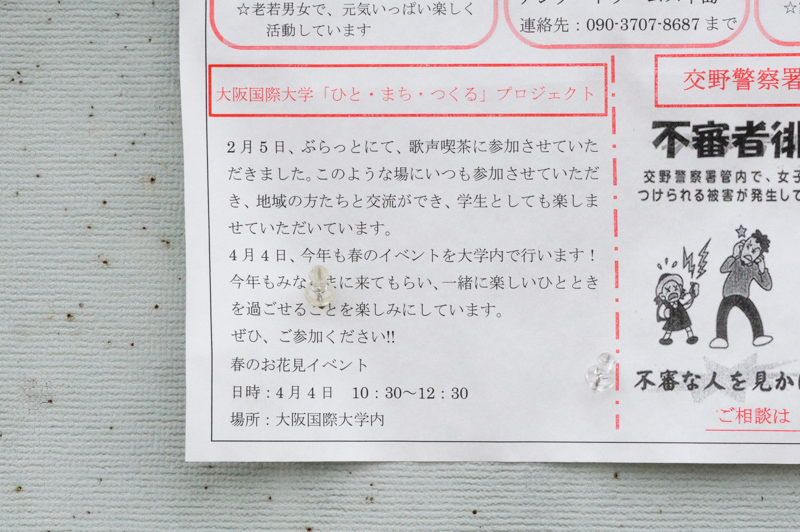 ☆老若男女で、元気いっぱい楽しく
活動しています
連絡先：090-3707-8687まで
大阪国際大学「ひと・まち・つくる」プロジェクト
2月5日、ぷらっとにて、歌声喫茶に参加させていた
だきました。このような場にいつも参加させていただ
き、地域の方たちと交流ができ、学生としても楽しま
せていただいています。
4月4日、今年も春のイベントを大学内で行います！
今年もみな まに来てもらい、一緒に楽しいひととき
を過ごせることを楽しみにしています。
ぜひ、ご参加ください!!
春のお花見イベント
日時：4月4日　10：30～12：30
場所：大阪国際大学内
交野警察署
不審者徘
交野警察署管内で、女子
つけられる被害が発生して
不審な人を見か
ご相談は